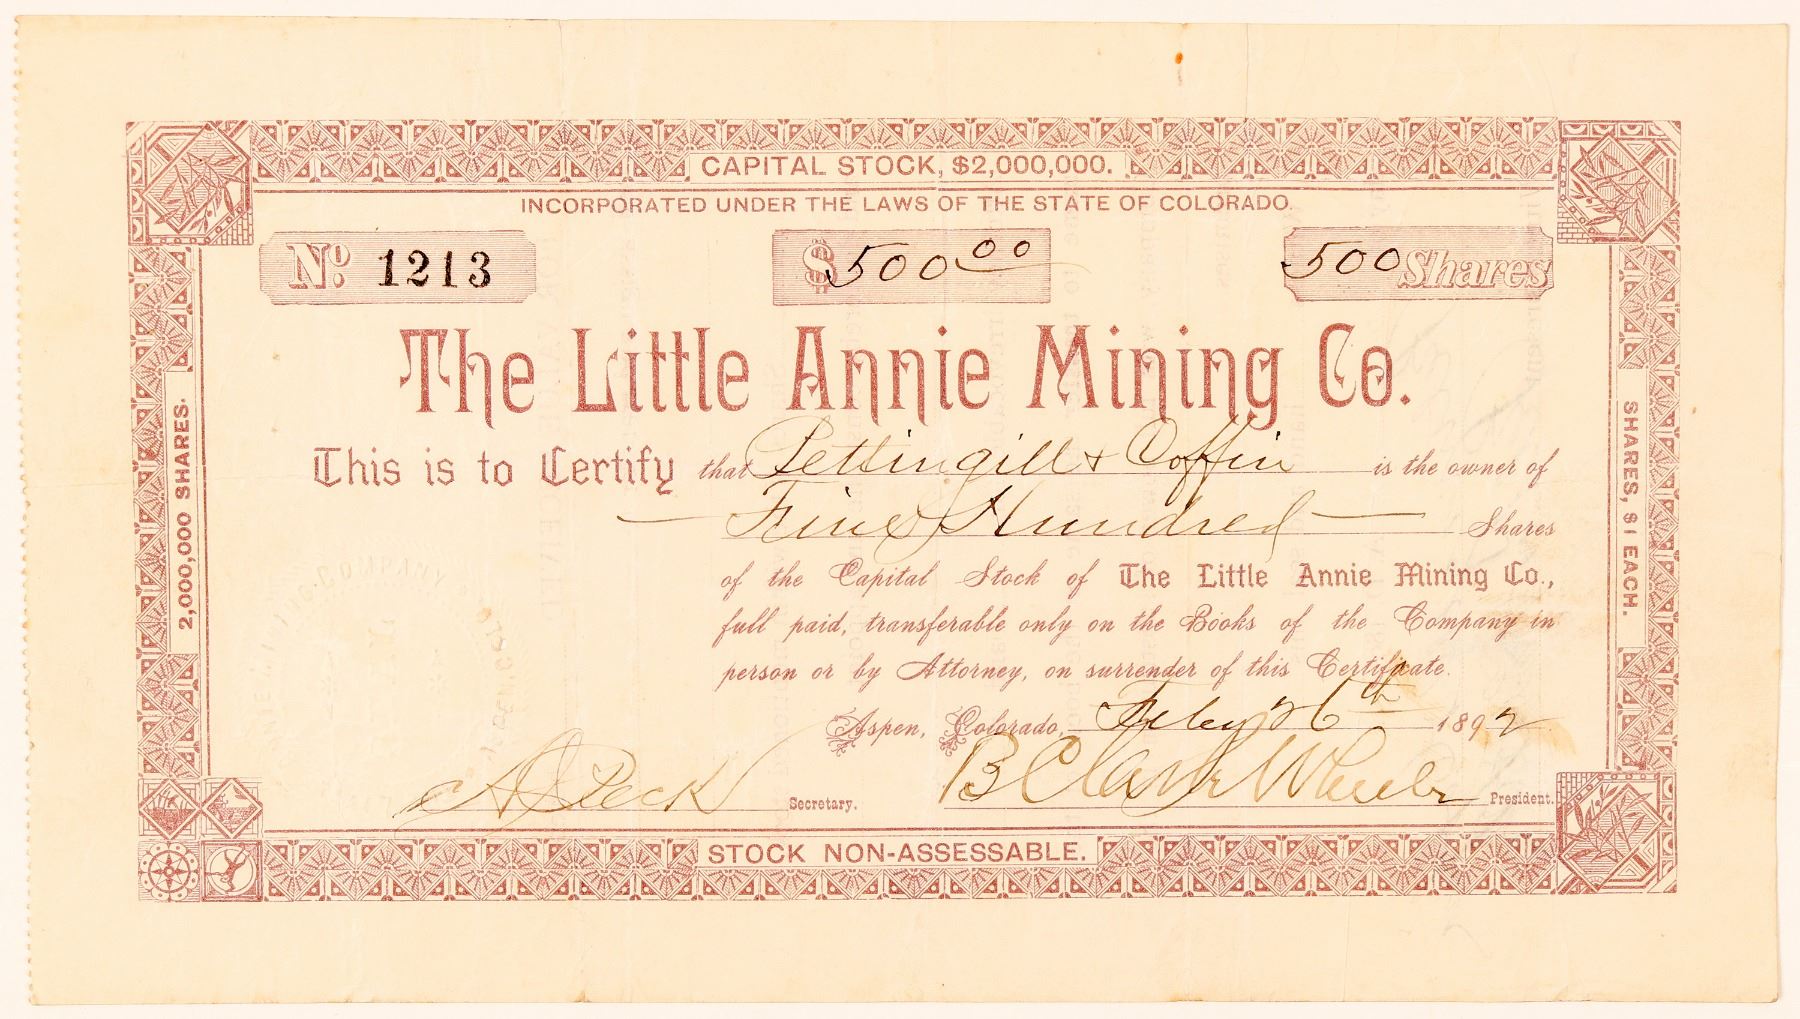 CAPITAL STOCK, $2,000,000.
INCORPORATED UNDER THE LAWS OF THE STATE OF COLORADO.
No. 1213 $500.00 500 Shares
The Little Annie Mining Co.
This is to Certify that Pettingill & Coffin is the owner of
Five Hundred Shares
of the Capital Stock of The Little Annie Mining Co.,
full paid, transferable only on the Books of the Company in
person or by Attorney, on surrender of this Certificate.
Aspen, Colorado, Feby 26th 1892
A J Peck Secretary. B Clark Wheeler President.
STOCK NON-ASSESSABLE.
2,000,000 SHARES.
SHARES, $1 EACH.
MINING COMPANY